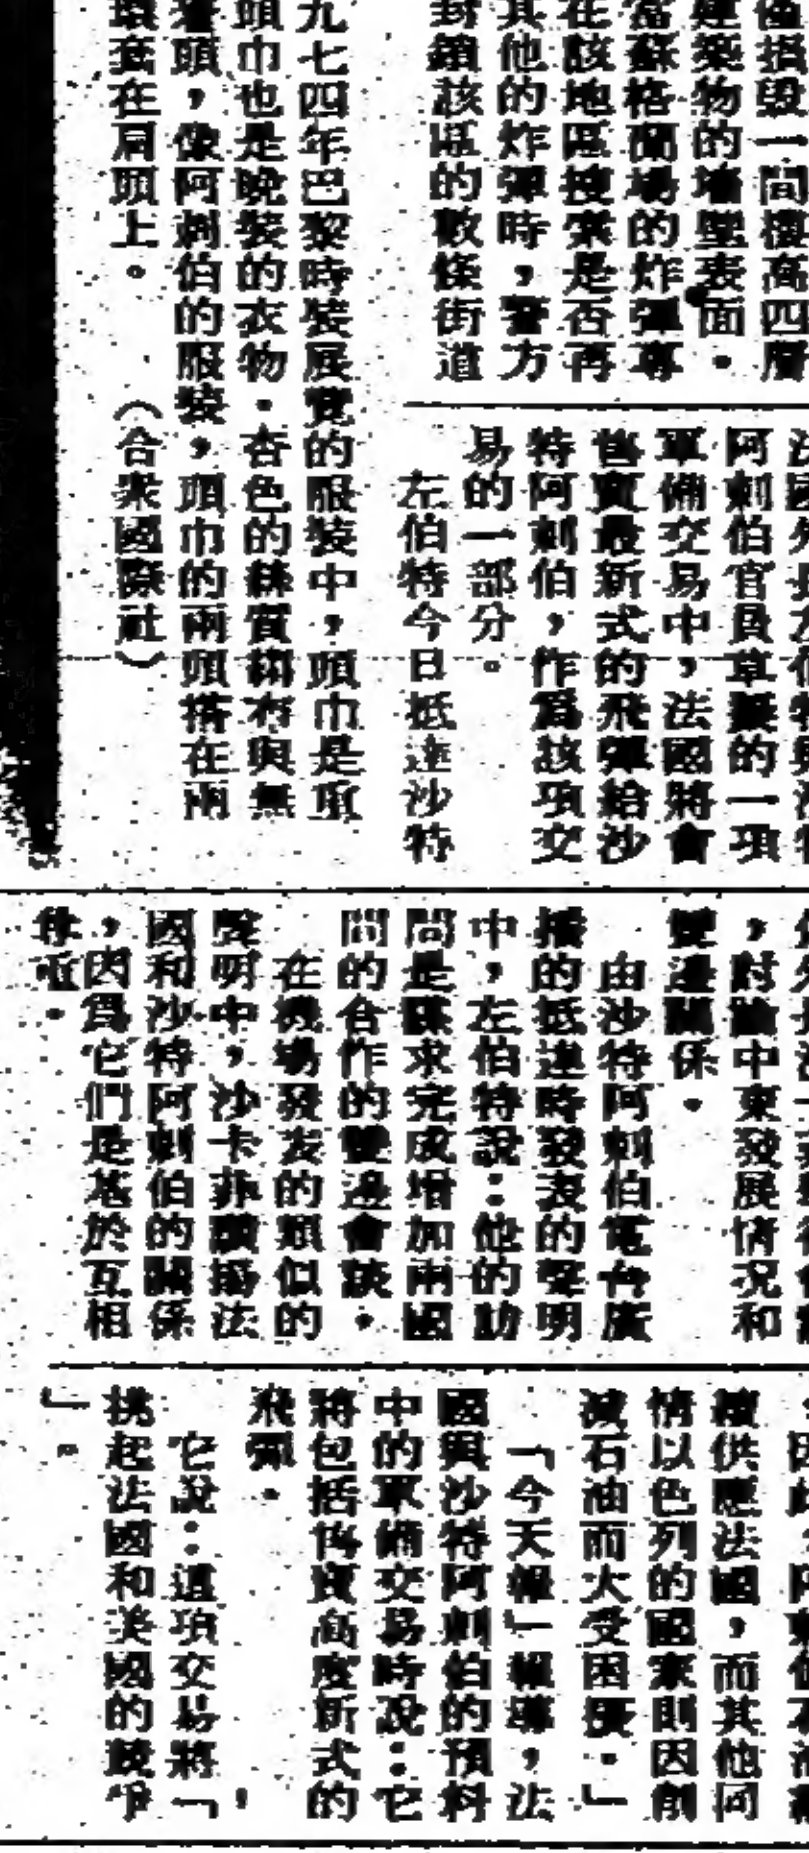 毀一間樓高四層
建築物的牆壁表面。
當蘇格蘭場的炸彈專
在該地區搜索是否再
其他的炸彈時，警方
封鎖該區的數條街道
九七四年巴黎時裝展覽的服裝中，頭巾是項
頭巾也是晚裝的衣物。杏色的絲質綢布與無
頭，像阿剌伯的服裝，頭巾的兩頭搭在兩
環套在肩頭上。（合衆國際社）
阿剌伯官員草擬的一項
軍備交易中，法國將會
售賣最新式的飛彈給沙
特阿剌伯，作爲該項交
易的一部分。
左伯特今日抵達沙特
，討論中東發展情况和
雙邊關係。
由沙特阿剌伯電台廣
播的抵達時發表的聲明
中，左伯特說：他的訪
問是謀求完成增加兩國
間的合作的雙邊會談。
在機場發表的類似的
聲明中，沙卡菲讚揚法
國和沙特阿剌伯的關係
，因爲它們是基於互相
尊重。
續供應法國，而其他同
情以色列的國家則因削
減石油而大受困擾。」
「今天報」報導，法
國與沙特阿剌伯的預料
中的軍備交易時說：它
將包括售賣高度新式的
飛彈。
它說：這項交易將「
挑起法國和美國的競爭
」。